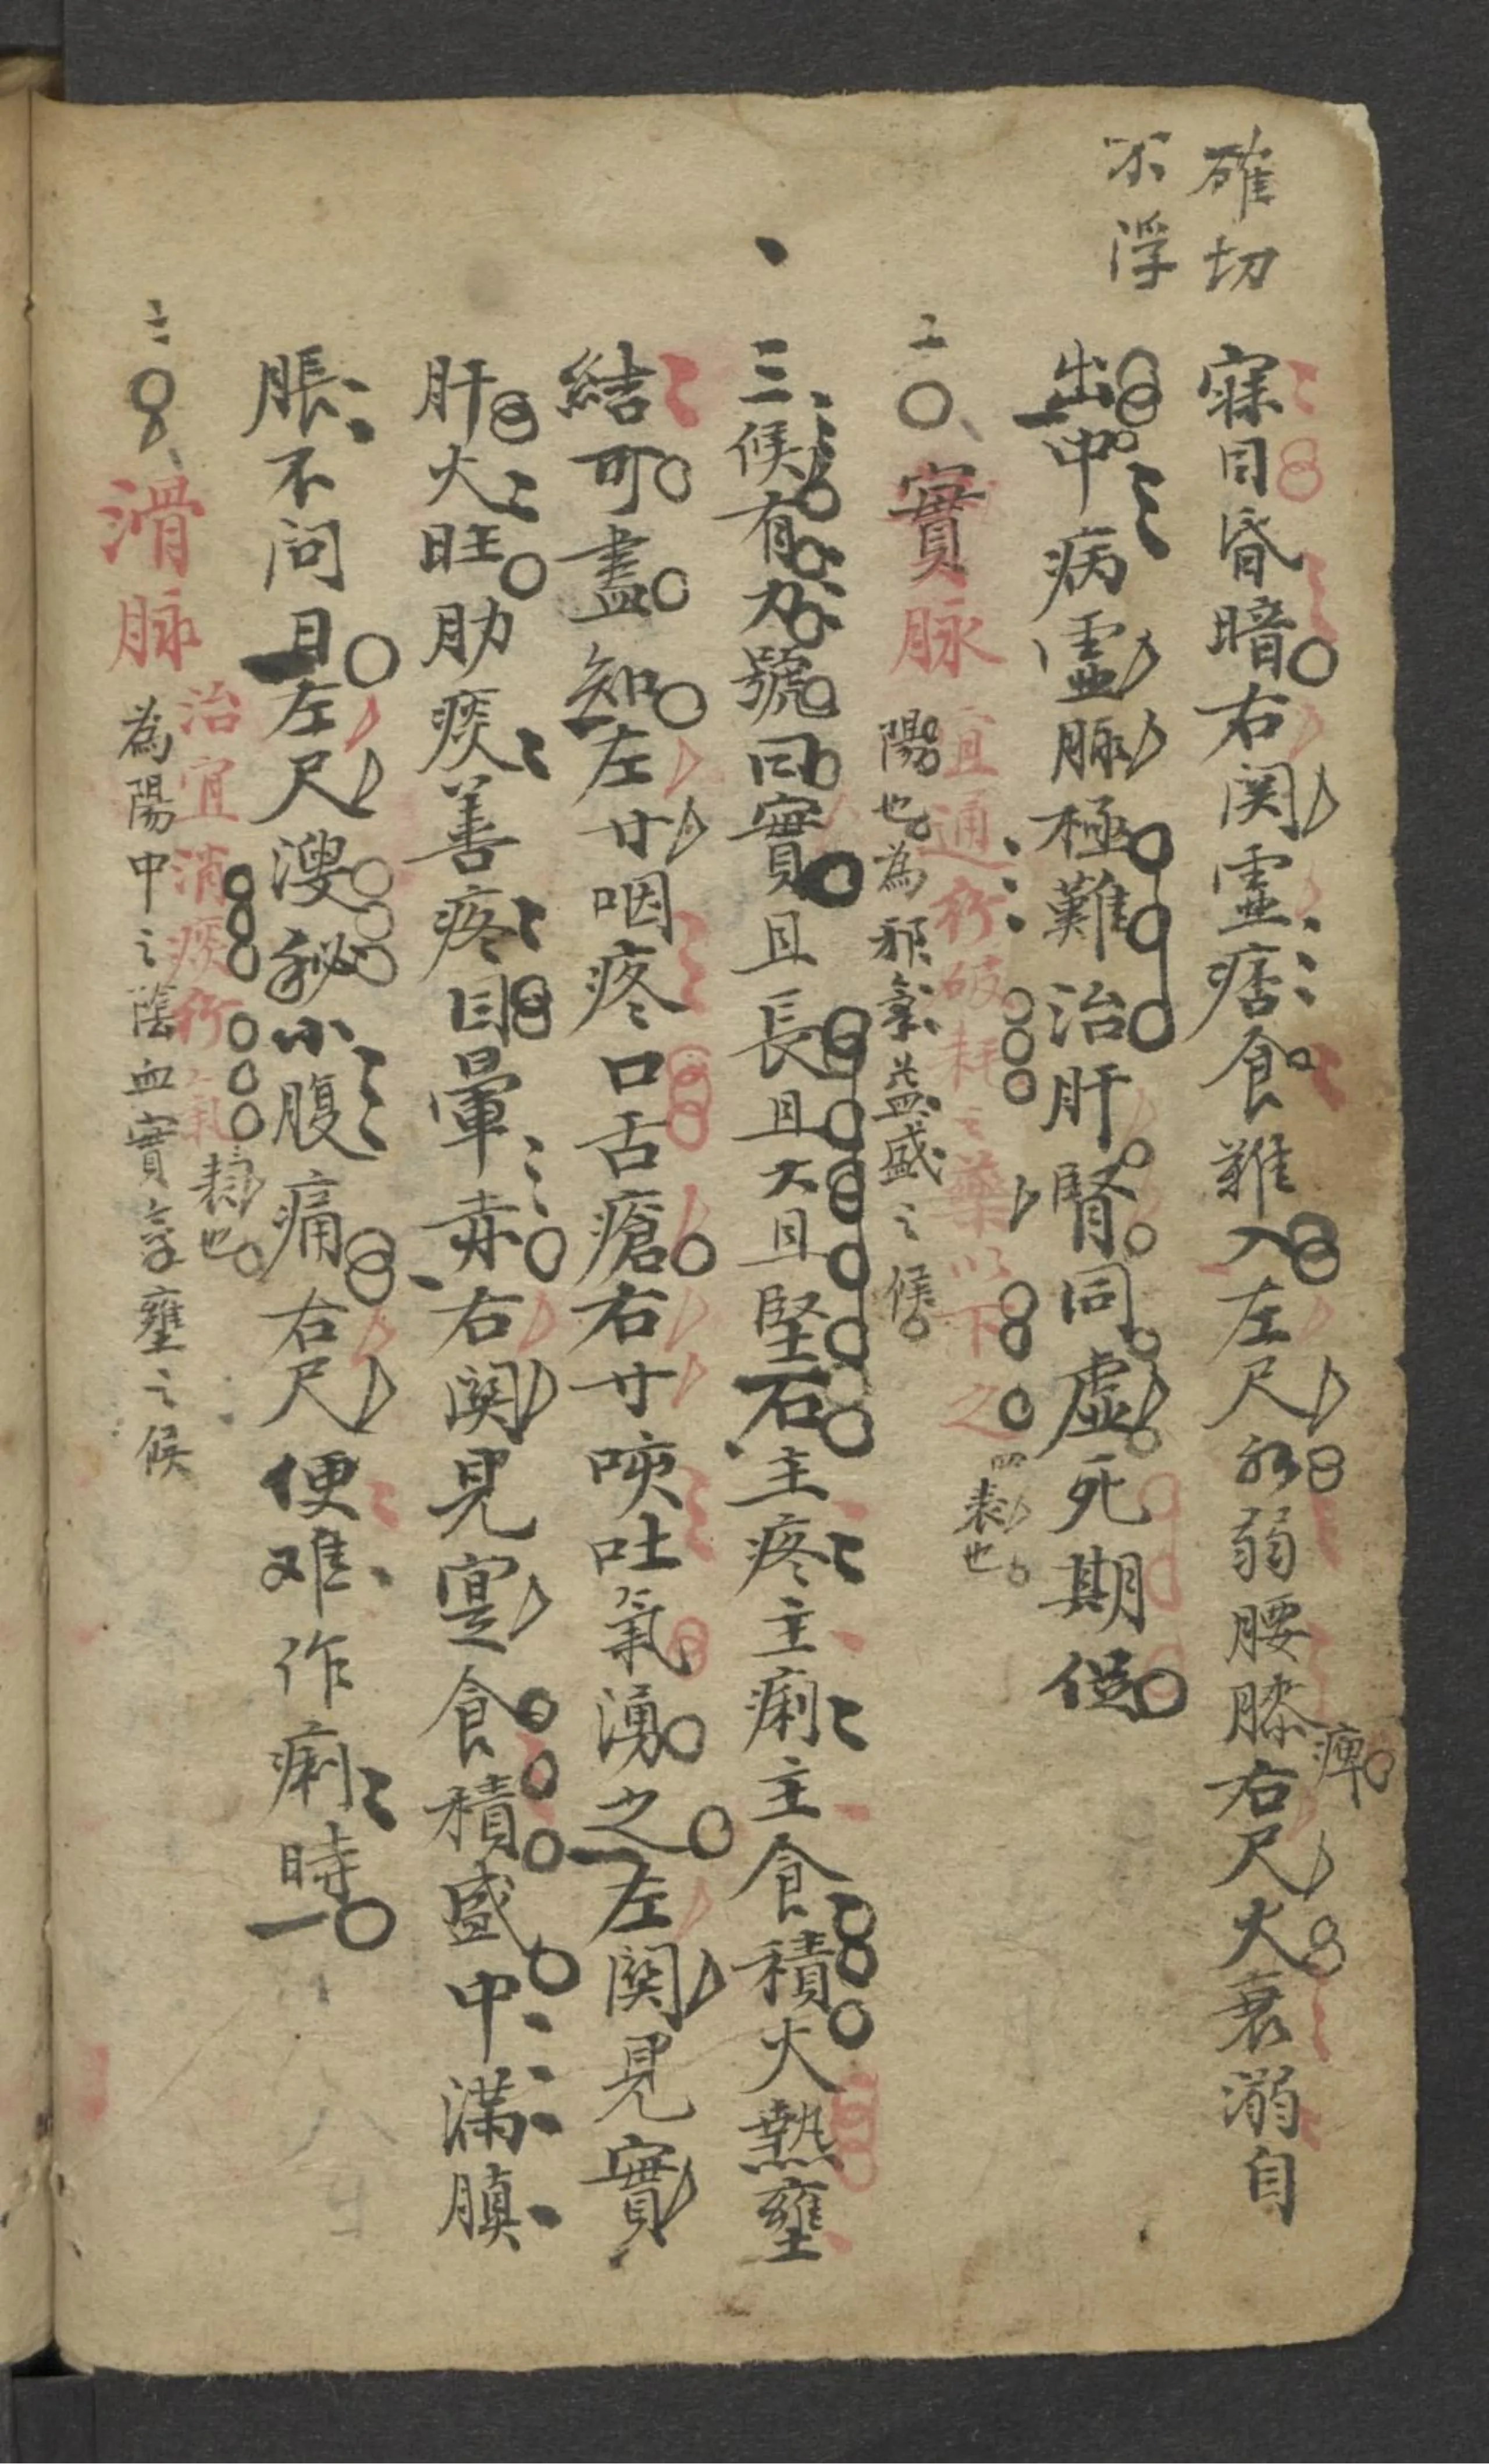 確切
不浮
寐目昏暗右関灵痞食難入左尺水弱腰膝右尺火衰溺自
痺
出中病灵脉極難治肝腎同虚死期促
二〇實脉
宜通行破耗之藥以下之
四表也
陽也為邪氣益盛之候
三候有力號曰實且長且大且堅石主疼主痢主食積大熱壅
結可盡知左寸咽疼口舌瘡右寸咦吐氣湧之左関見實
肝火旺肋痰善疼目暈赤右関見寔食積盛中滿䐜
脹不問且左尺溲秘小腹痛右尺便难作痢時
二〇滑脉
治宜消痰行氣
表也
為陽中之陰血實氣壅之候